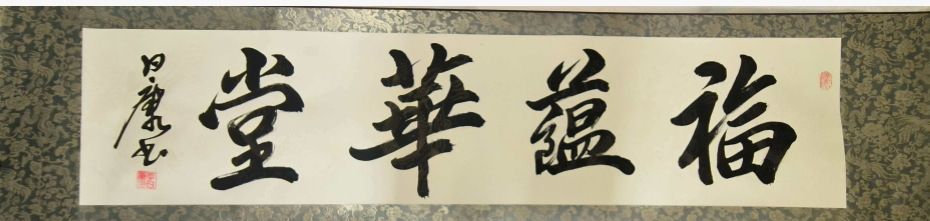 福蘊華堂
日康书